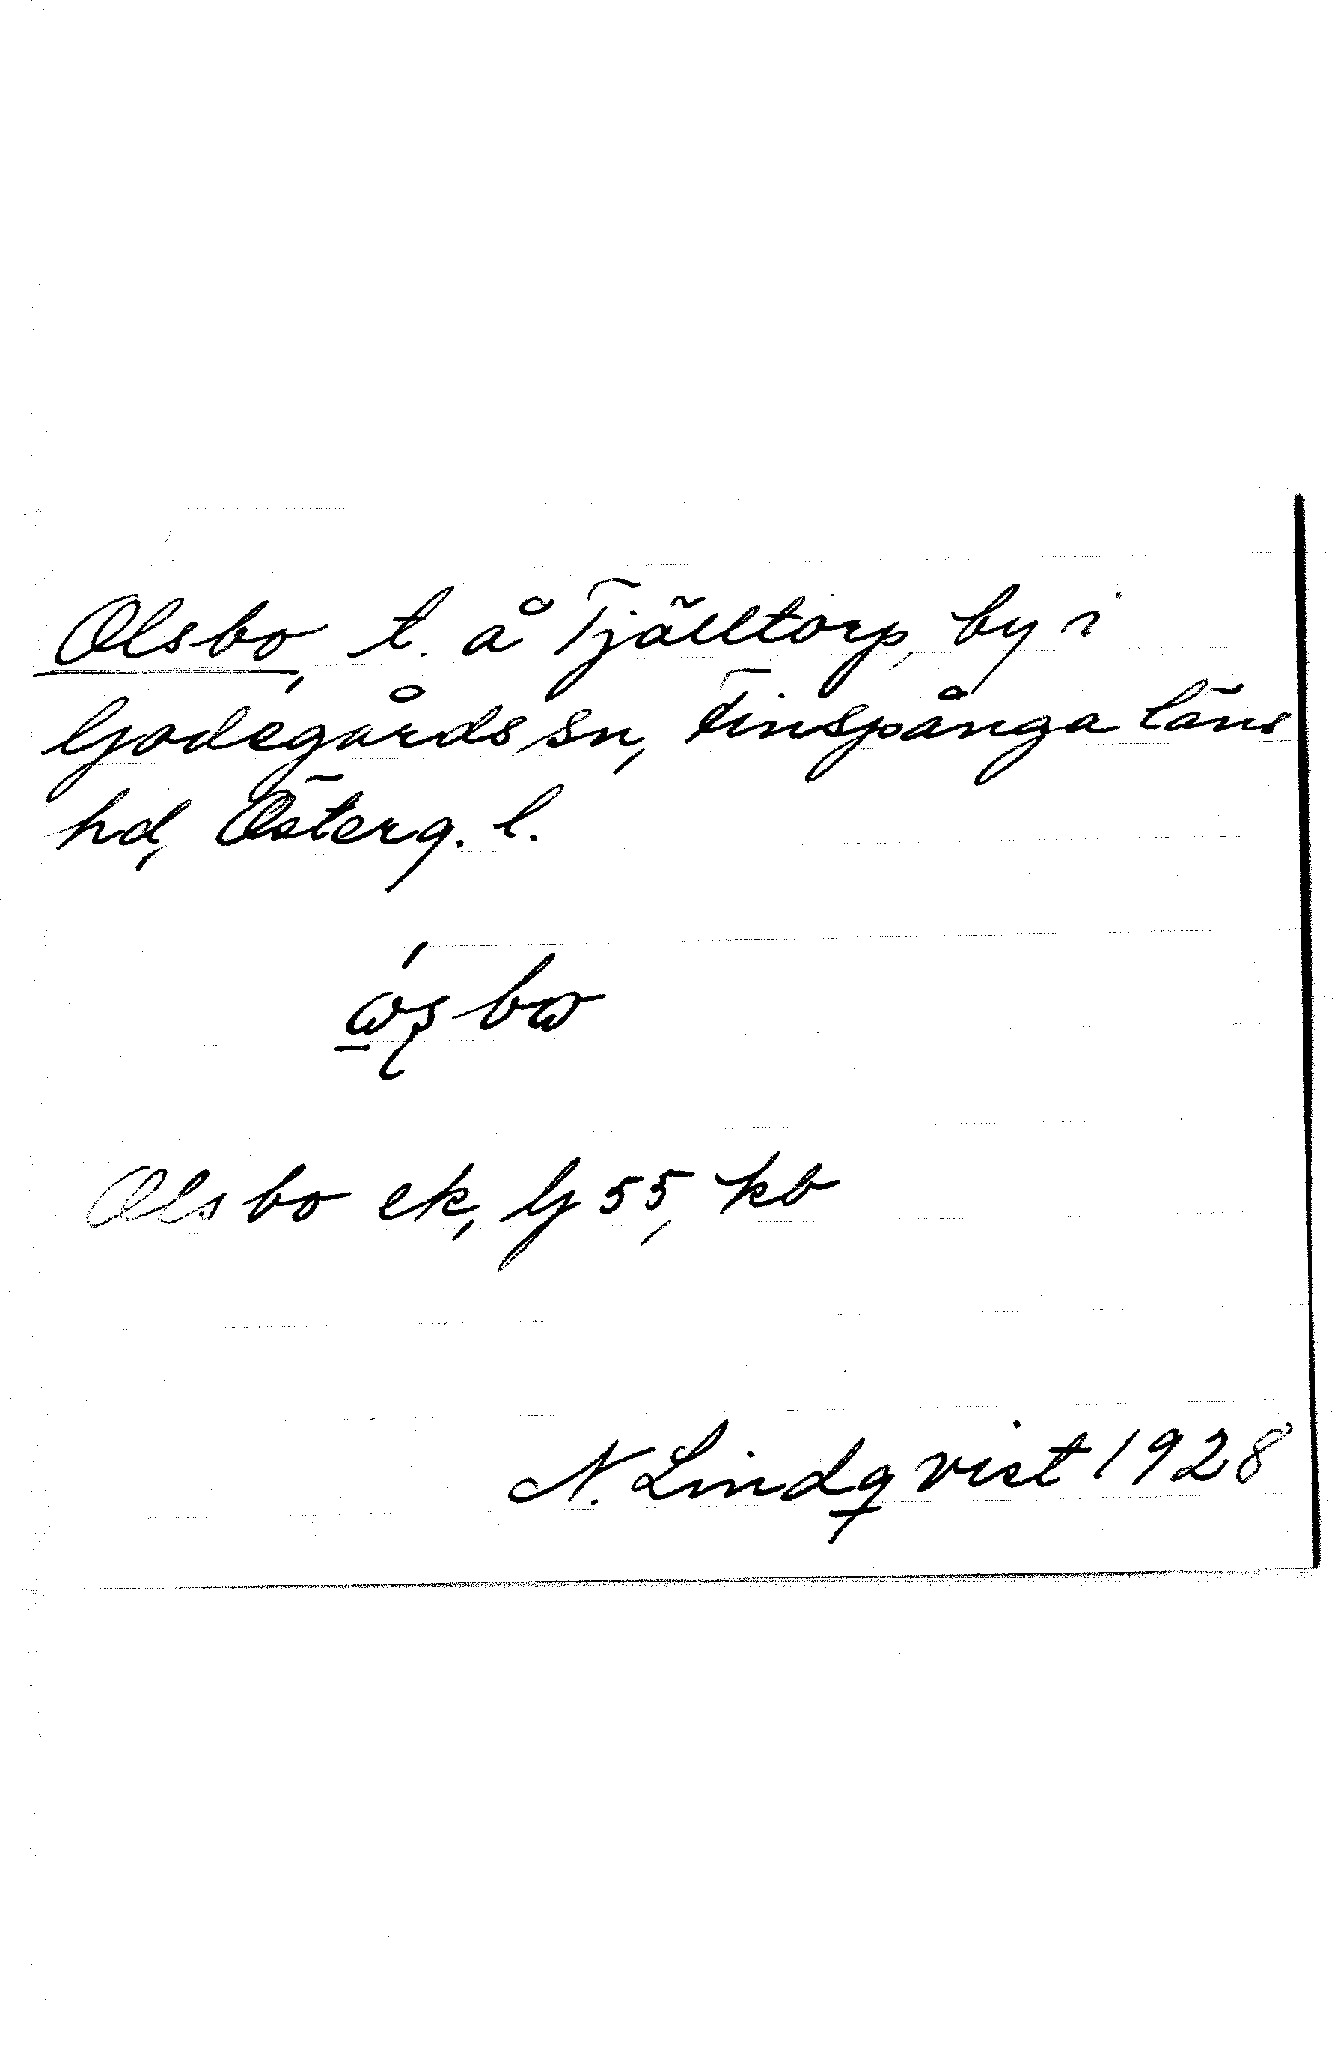 Olsbo, t. å Tjälltorp, by i
Godegårds sn, Finspånga läns
hd, Österg. l.
ώ̲ʂbω
Olsbo ek, G 55, kb
N. Lindqvist 1928